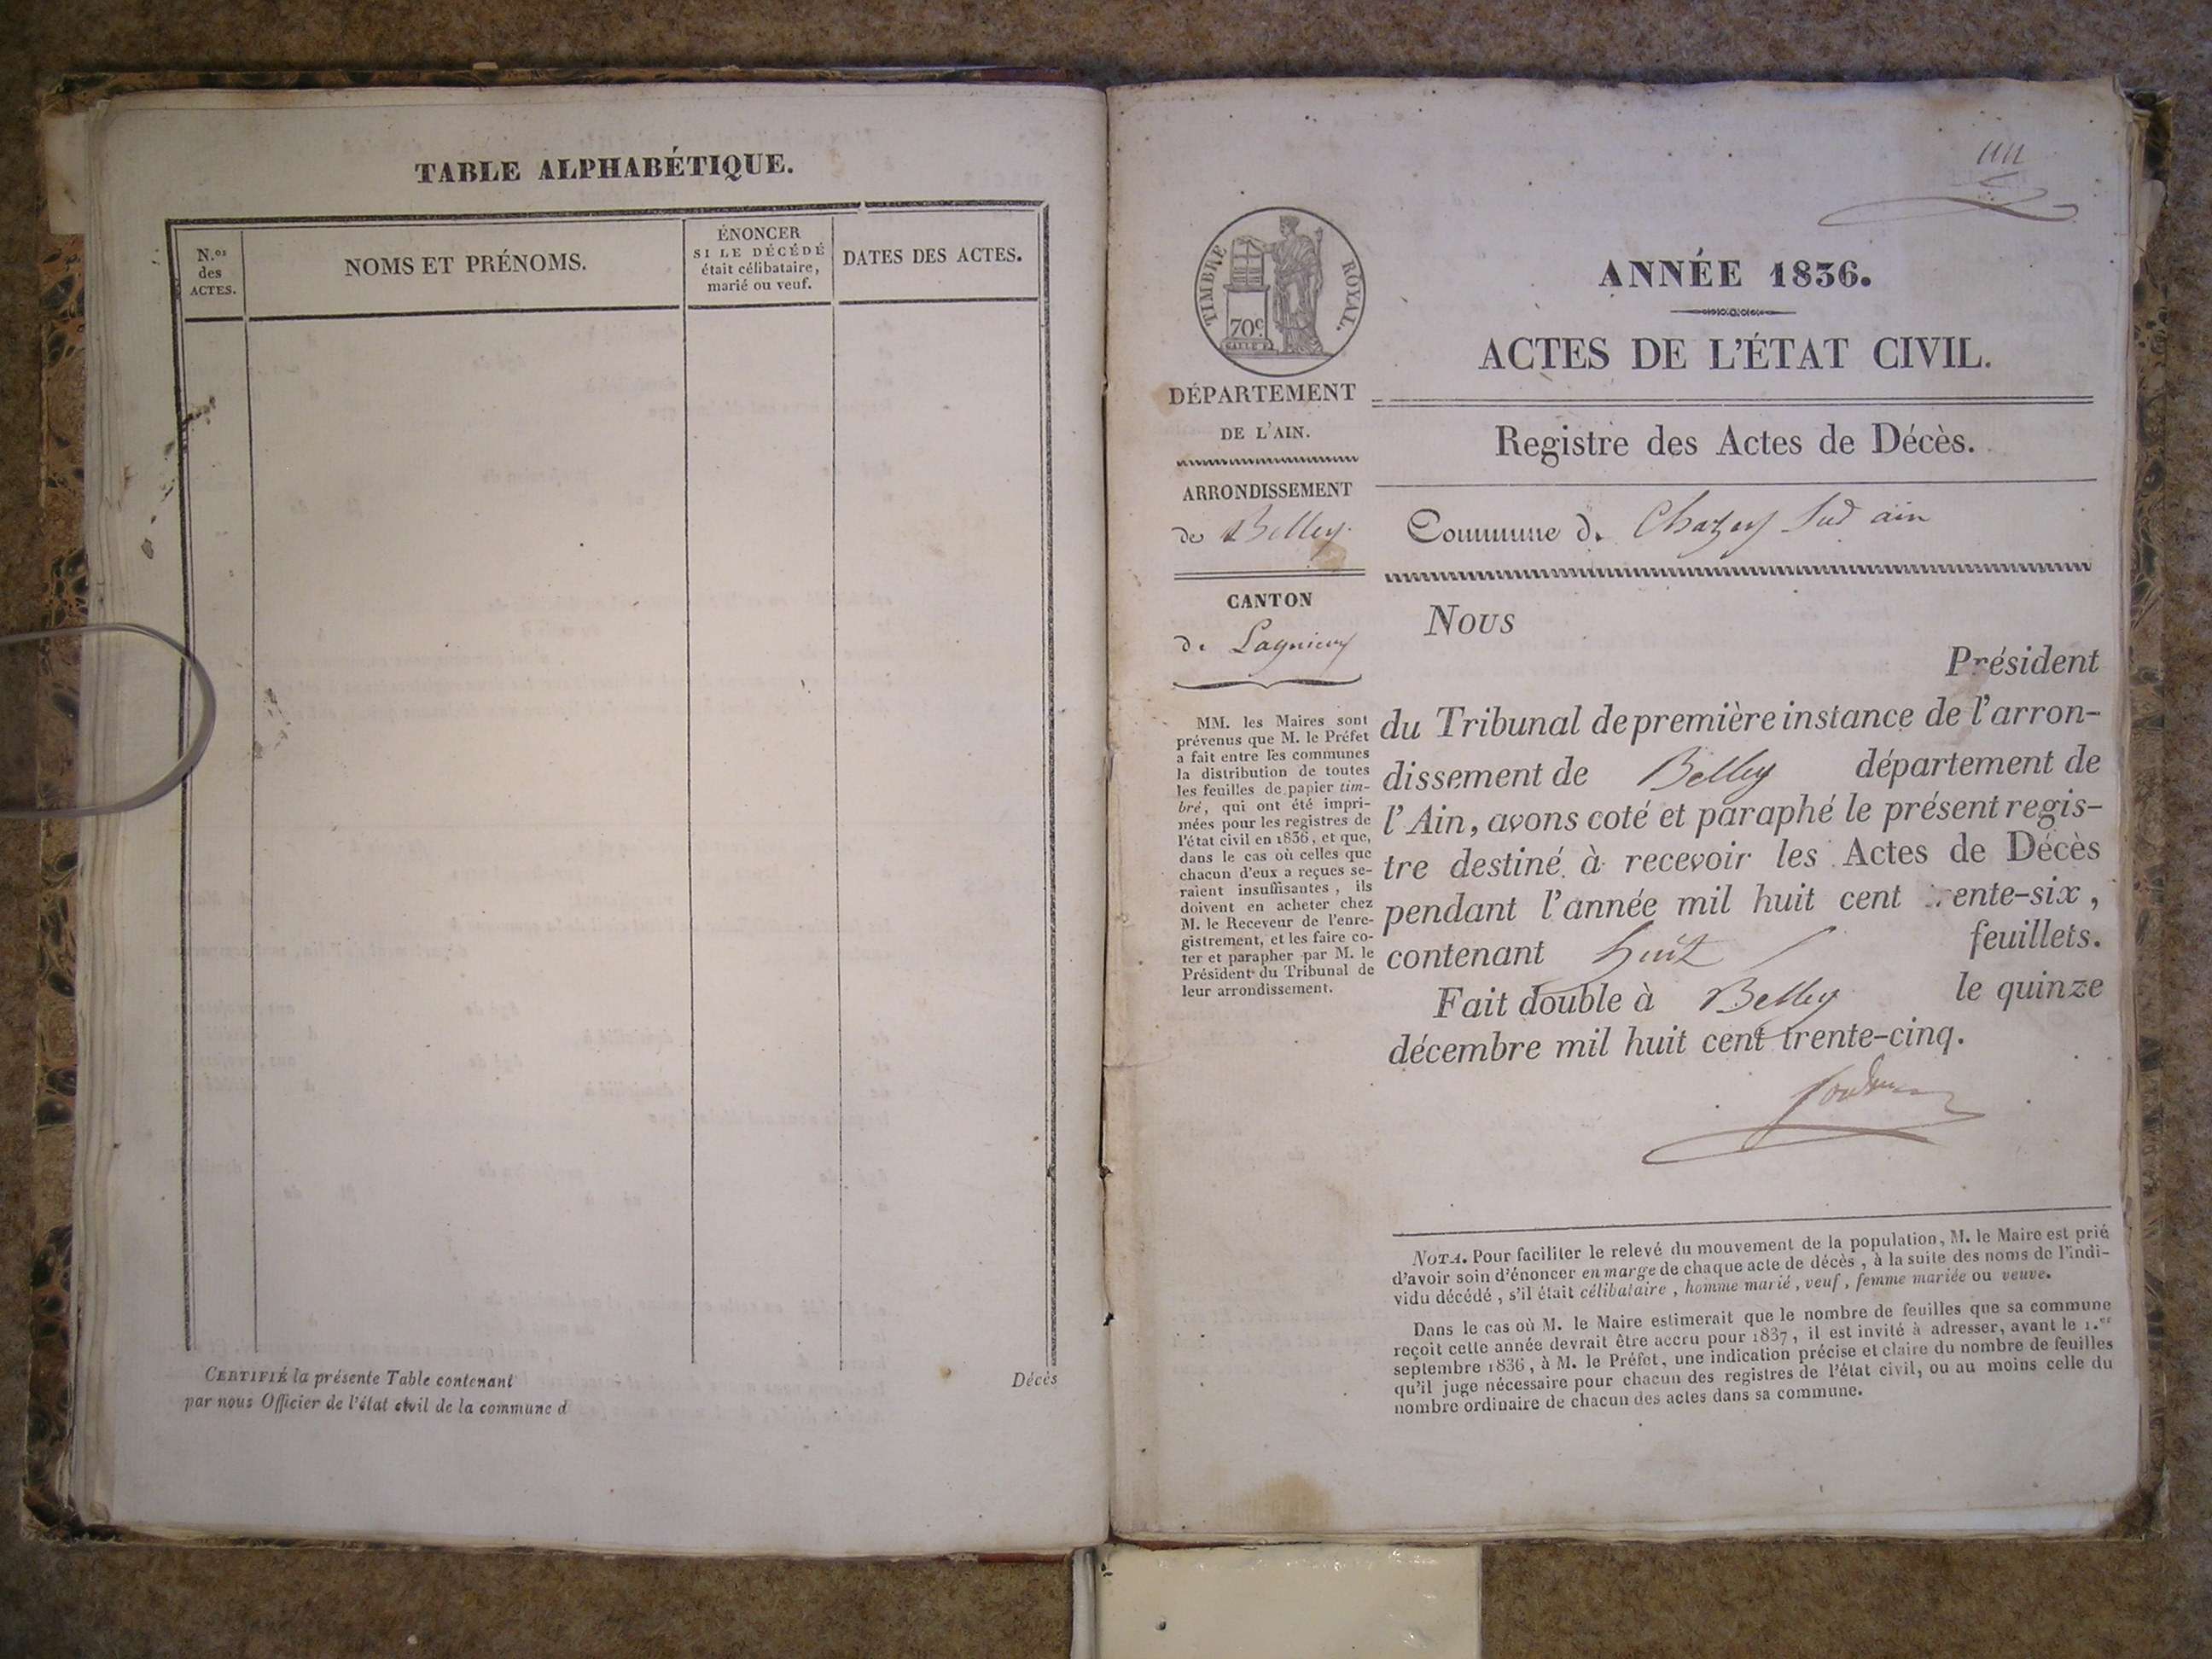 TABLE ALPHABÉTIQUE.
N.os
des
ACTES.
NOMS ET PRÉNOMS.
ÉNONCER
SI LE DÉCÉDÉ
était célibataire,
marié ou veuf.
DATES DES ACTES.
CERTIFIÉ la présente Table contenant Décès
par nous Officier de l'état civil de la commune d
un
TIMBRE ROYAL.
70c
DÉPARTEMENT
DE L'AIN.
ARRONDISSEMENT
de Belley.
CANTON
de Lagnieu
MM. les Maires sont
prévenus que M. le Préfet
a fait entre les communes
la distribution de toutes
les feuilles de papier tim-
bré, qui ont été impri-
mées pour les registres de
l'état civil en 1836, et que,
dans le cas où celles que
chacun d'eux a reçues se-
raient insuffisantes, ils
doivent en acheter chez
M. le Receveur de l'enre-
gistrement, et les faire co-
ter et parapher par M. le
Président du Tribunal de
leur arrondissement.
ANNÉE 1836.
ACTES DE L'ÉTAT CIVIL.
Registre des Actes de Décès.
Commune de Chazey sud ain
Nous
Président
du Tribunal de première instance de l'arron-
dissement de Belley département de
l'Ain, avons coté et paraphé le présent regis-
tre destiné à recevoir les Actes de Décès
pendant l'année mil huit cent trente-six,
contenant huit feuillets.
Fait double à Belley le quinze
décembre mil huit cent trente-cinq.
NOTA. Pour faciliter le relevé du mouvement de la population, M. le Maire est prié
d'avoir soin d'énoncer en marge de chaque acte de décès, à la suite des noms de l'indi-
vidu décédé, s'il était célibataire, homme marié, veuf, femme mariée ou veuve.
Dans le cas où M. le Maire estimerait que le nombre de feuilles que sa commune
reçoit cette année devrait être accru pour 1837, il est invité à adresser, avant le 1.er
septembre 1836, à M. le Préfet, une indication précise et claire du nombre de feuilles
qu'il juge nécessaire pour chacun des registres de l'état civil, ou au moins celle du
nombre ordinaire de chacun des actes dans sa commune.